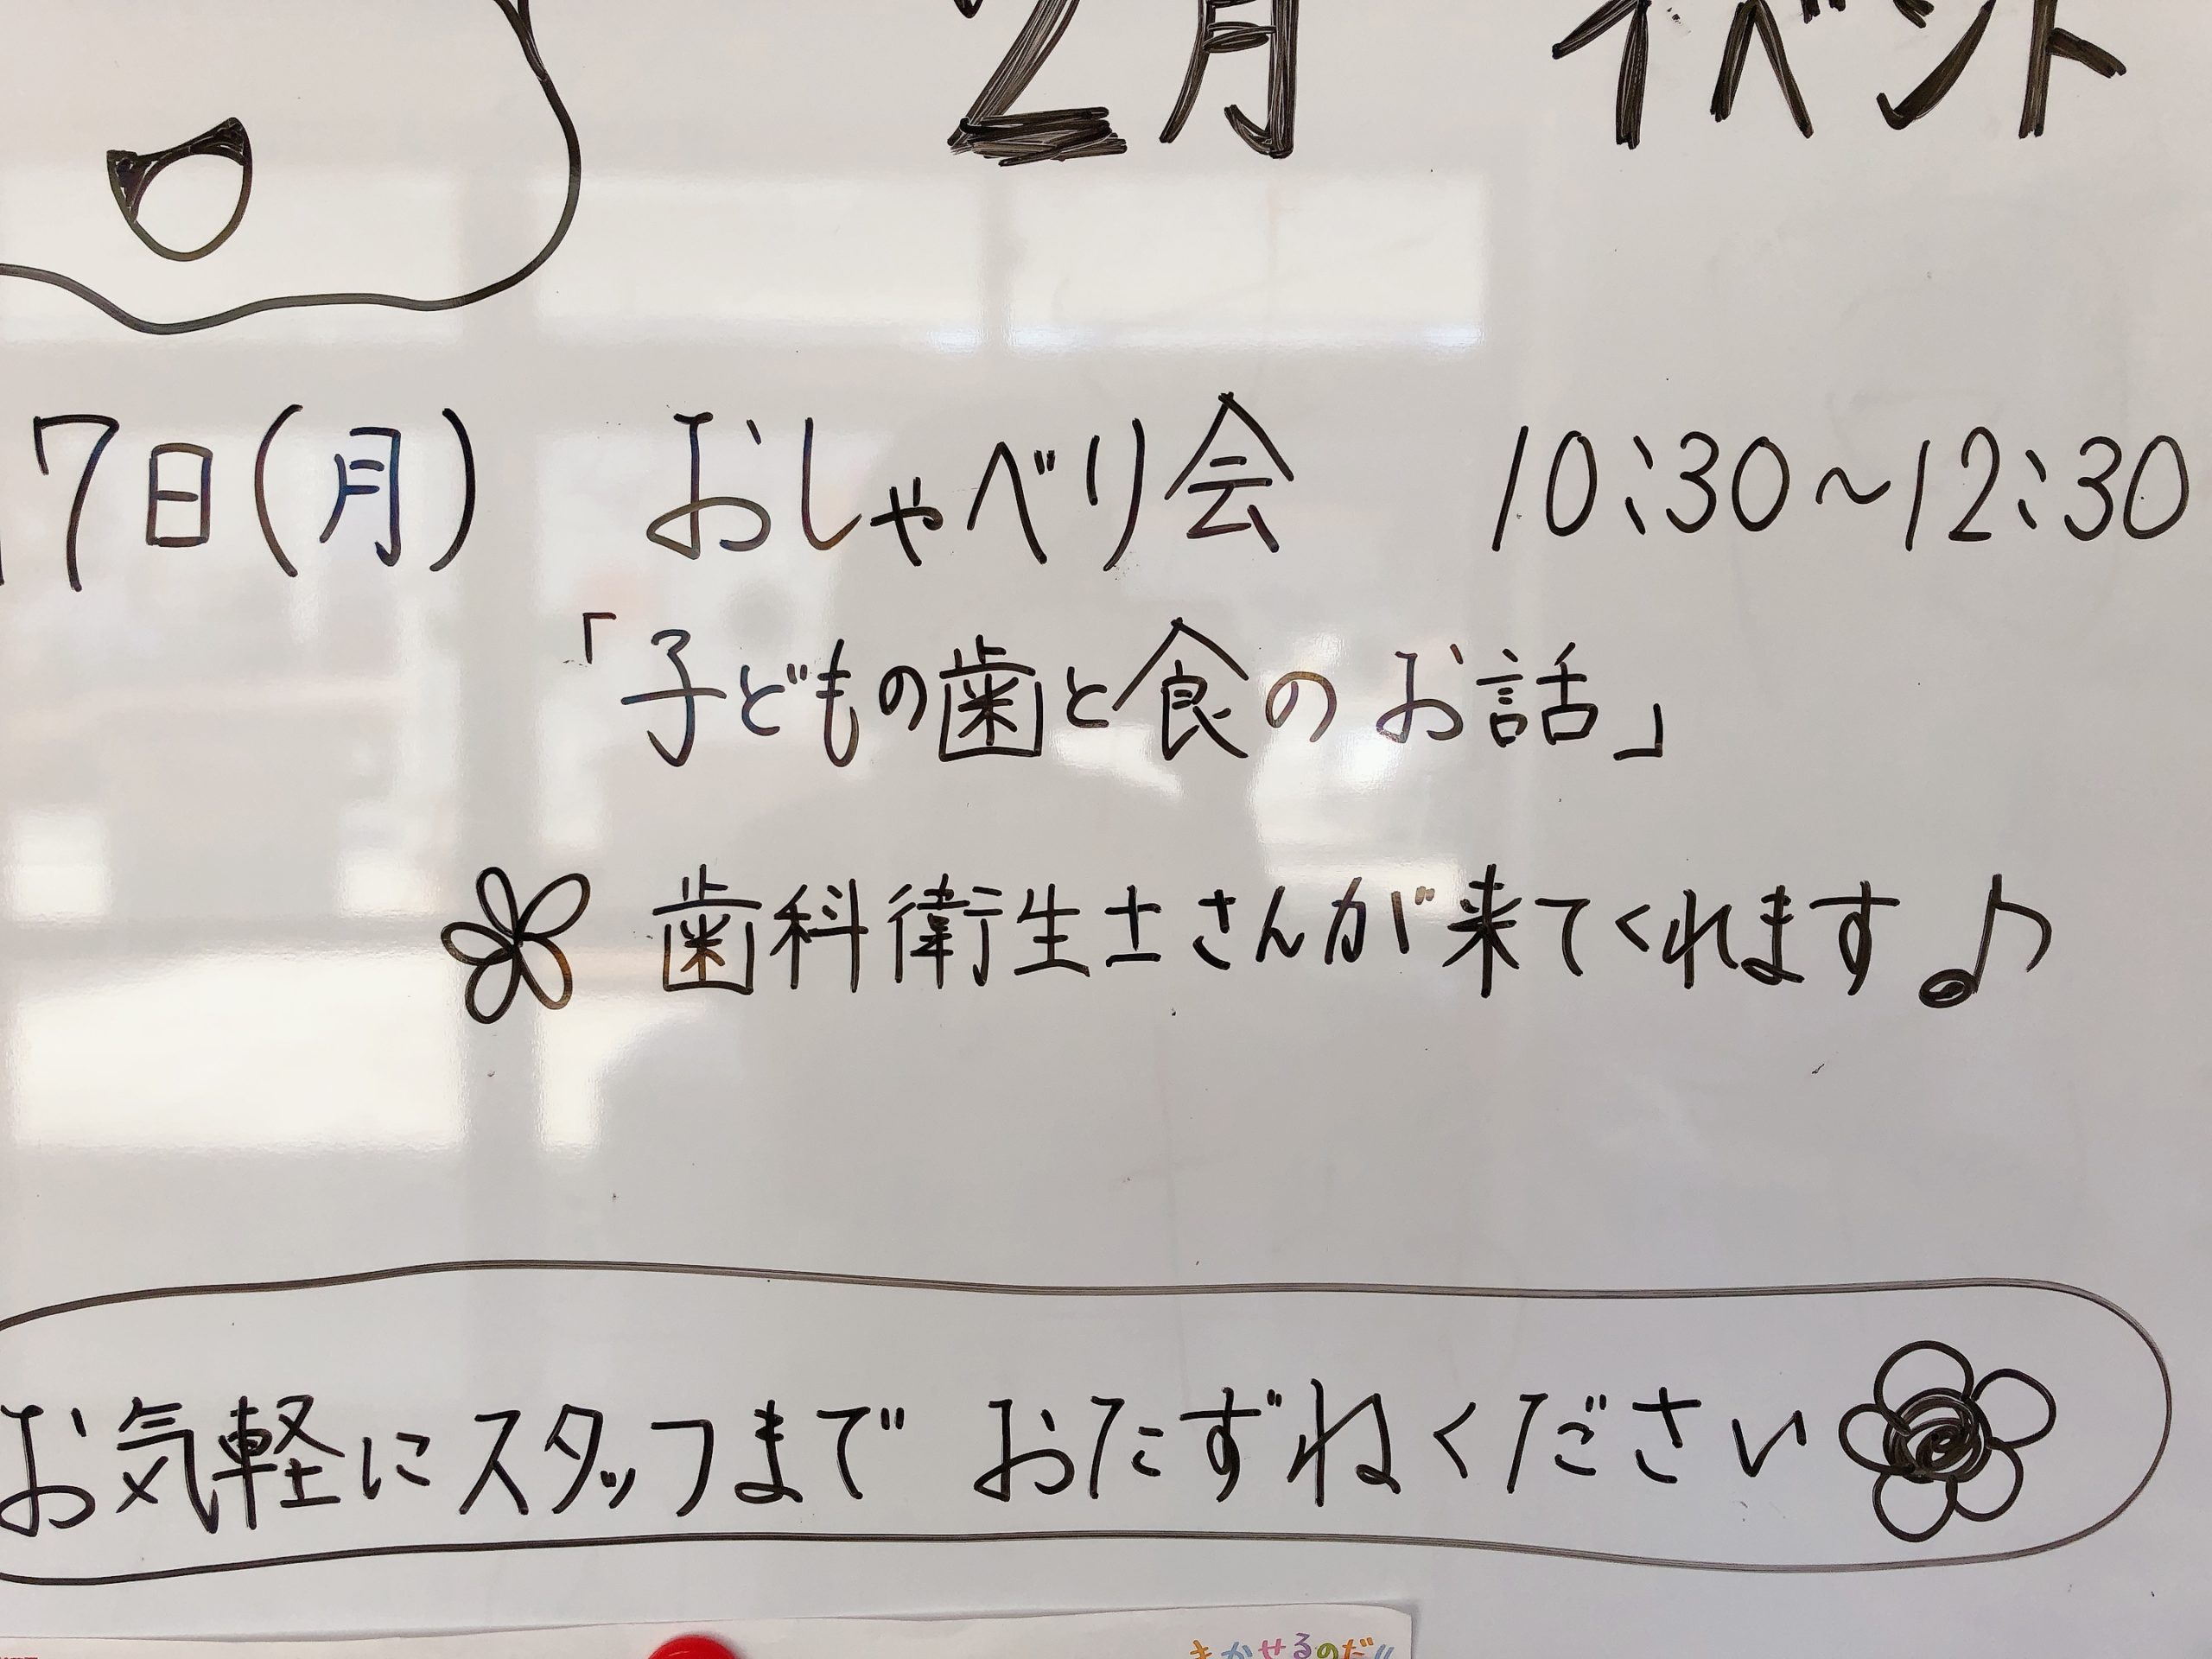 2月 イベント
17日(月) おしゃべり会 10:30~12:30
「子どもの歯と食のお話」
歯科衛生士さんが来てくれます♪
お気軽にスタッフまで おたずねください
まかせるのだ!!